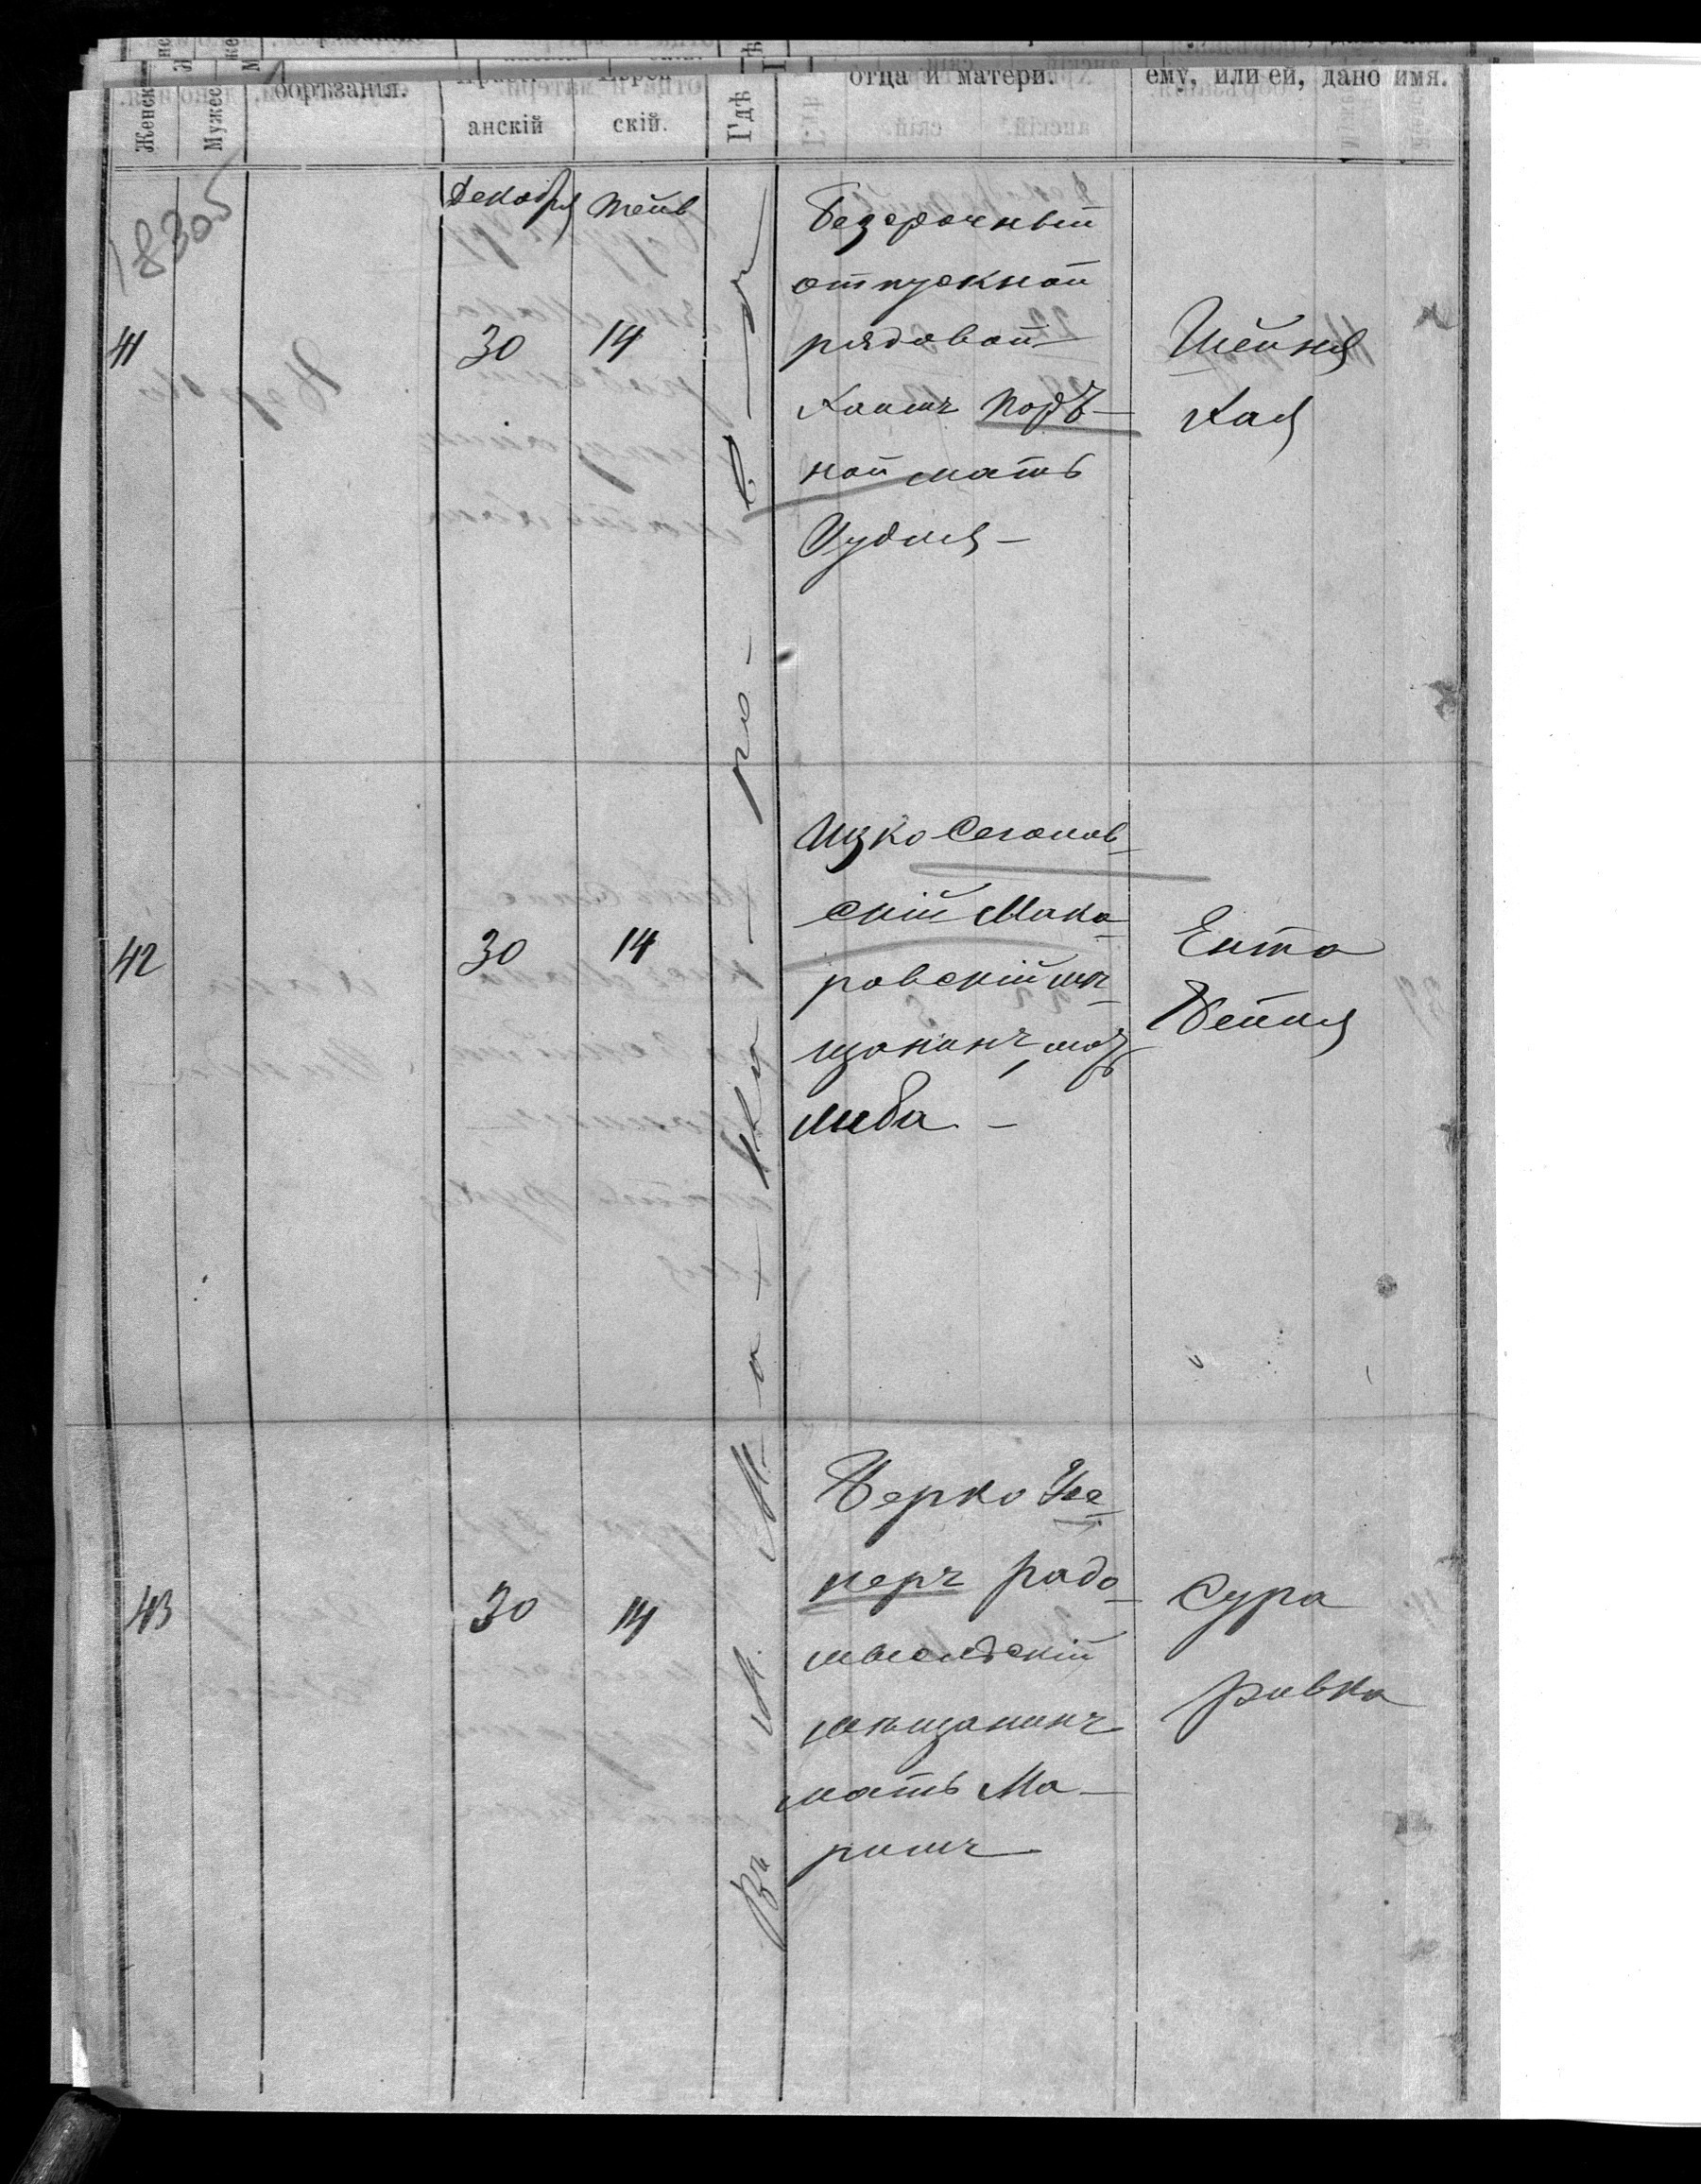 Женск
Мужес
обрѣзания.
анскій
скій.
Гдѣ
отца и матери.
ему, или ей, дано имя.
18305
Декабря Тейв
41
30 14
Безсрочный
отпускной
рядовой
Хаимъ Порт-
ной мать
Худися -
Шейня
Хая
42
30 14
Ицко Сегонов-
скій Мака-
ровскій мѣ-
щанинъ, мать
Либа -
Ента
Бейля
43
30 14
Берко
перъ Радо-
мысльскій
мѣщанинъ
мать Ма-
римъ
Сура
Ривка
Въ М. Ма-ка-ро-в-ѣ